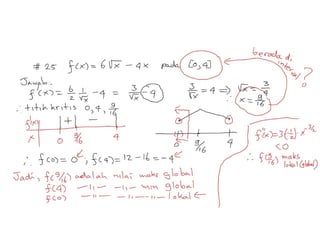 # 25 f(x) = 6√x − 4x pada [0,4]
berada di interval
?
Jawab.
f'(x) = 6/2 1/√x − 4 = 3/√x − 4
3/√x = 4 ⇒ √x = 3/4
∴ x = 9/16
∴ titik kritis 0, 4, 9/16
f'(x) + −
x 0 9/16 4
0 9/16 4
f''(x) = 3(−1/2) x^-3/2
< 0
∴ f(9/16) maks lokal (global)
∴ f(0) = 0, f(4) = 12 − 16 = −4
Jadi, f(9/16) adalah nilai maks global
f(4) —〃— —〃— min global
f(0) —〃— —〃— —〃— lokal ←